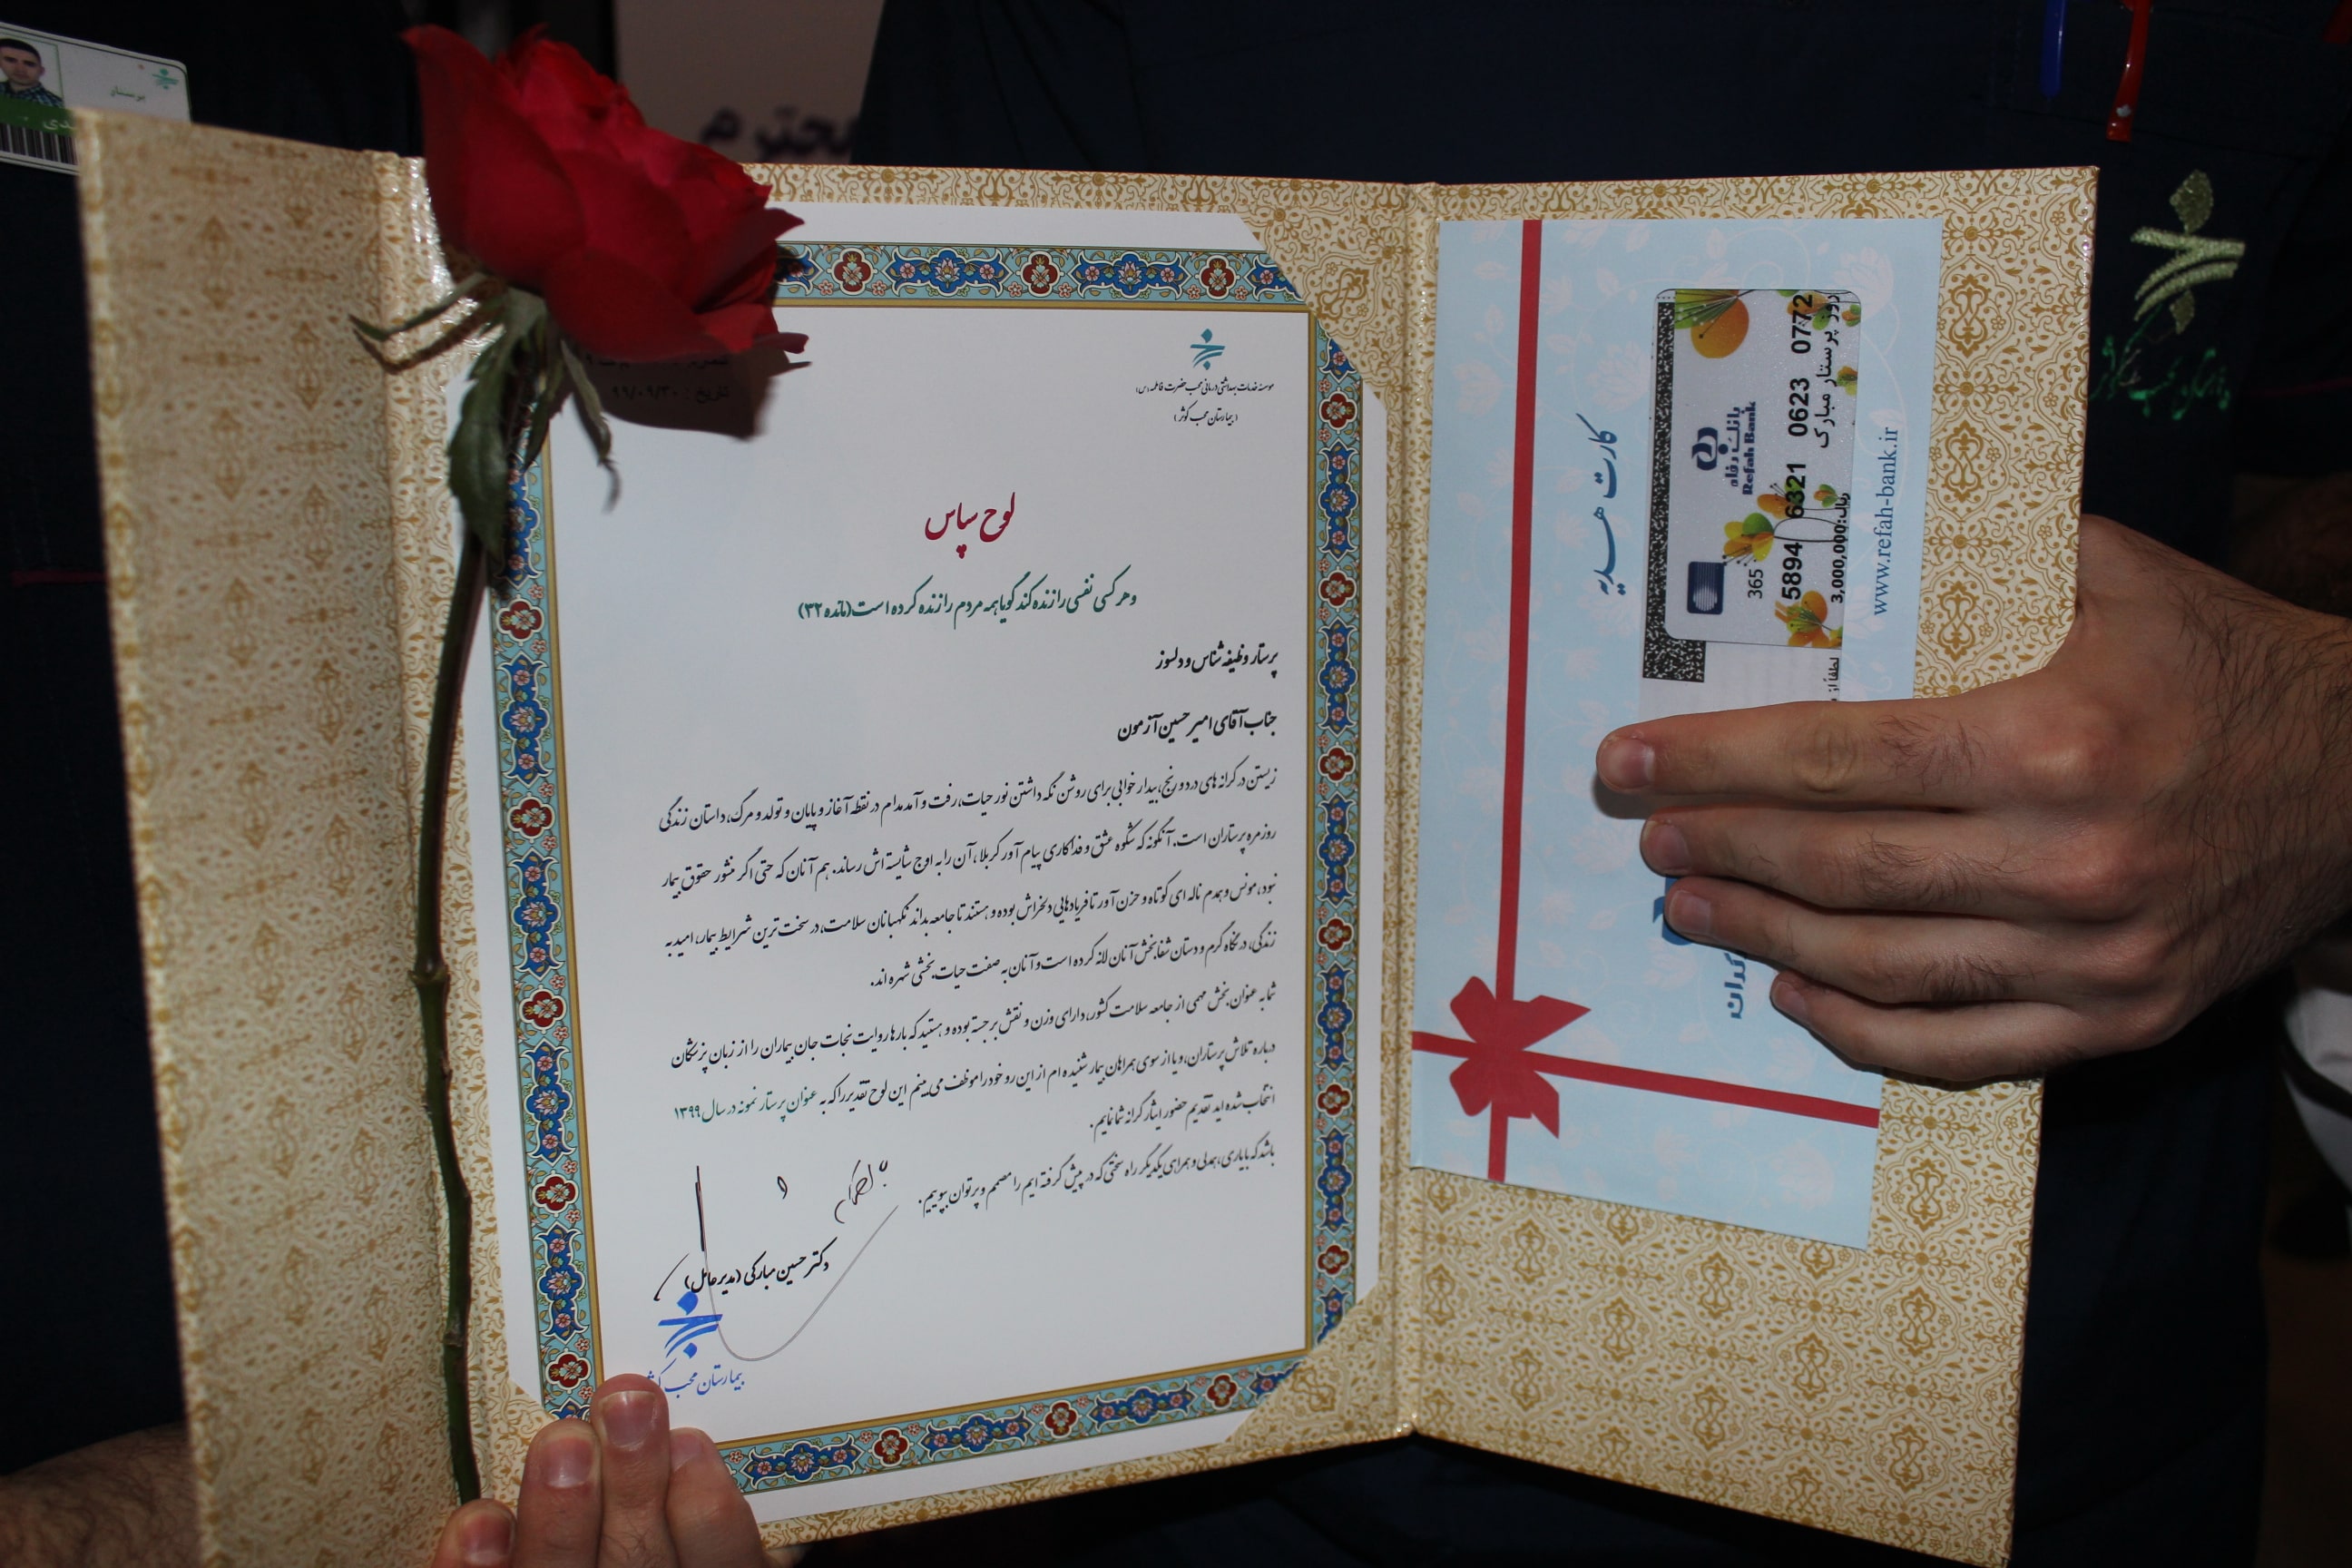 پرستار
محترم
تاریخ : ۹۹/۰۹/۳۰
موسسه خدمات بهداشتی درمانی محب حضرت فاطمه (س)
(بیمارستان محب کوثر)
لوح سپاس
و هر کسی نفسی را زنده کند گویا همه مردم را زنده کرده است (مائده ۳۲)
پرستار وظیفه شناس و دلسوز
جناب آقای امیر حسین آزمون
زیستن در کرانه های درد و رنج، بیدار خوابی برای روشن نگه داشتن نور حیات، رفت و آمد مدام در نقطه آغاز و پایان و تولد و مرگ، داستان زندگی
روزمره پرستاران است. آنگونه که شکوه عشق و فداکاری پیام آور کربلا، آن را به اوج شایسته اش رساند. هم آنان که حتی اگر منشور حقوق بیمار
نبود، مونس و همدم ناله ای کوتاه و حزن آور تا فریادهایی دلخراش بوده و هستند تا جامعه بداند نگهبانان سلامت، در سخت ترین شرایط بیمار، امید به
زندگی، در نگاه گرم و دستان شفابخش آنان لانه کرده است و آنان به صفت حیات بخشی شهره اند.
شما به عنوان بخش مهمی از جامعه سلامت کشور، دارای وزن و نقش برجسته بوده و هستید که بارها روایت نجات جان بیماران را از زبان پزشکان
درباره تلاش پرستاران، و یا از سوی همراهان بیمار شنیده ام از این رو خود را موظف می بینم این لوح تقدیر را که به عنوان پرستار نمونه در سال ۱۳۹۹
انتخاب شده اید تقدیم حضور ایثارگرانه شما نمایم.
باشد که با یاری، همدلی و همراهی یکدیگر راه سختی که در پیش گرفته ایم را مصمم و پرتوان بپوییم.
دکتر حسین مبارکی (مدیر عامل)
بیمارستان محب
کارت هدیه
بانک رفاه
Refah Bank
365
5894 6321 0623 0772
3,000,000:ریال
روز پرستار مبارک
لطفا از
www.refah-bank.ir